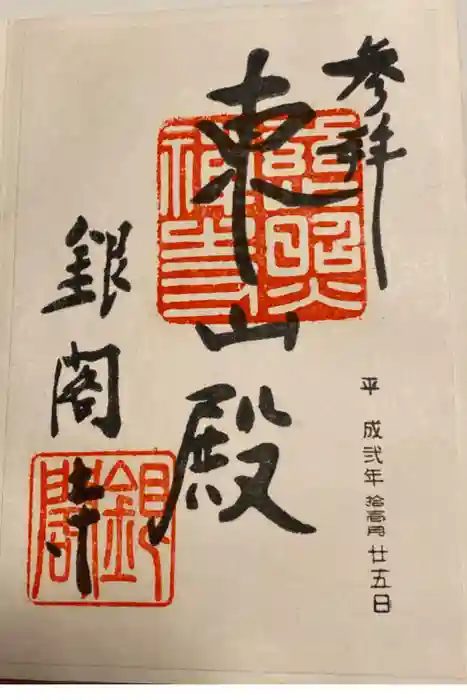 参拝
慈照禅寺
東山殿
平成弐年拾壹月廿五日
銀閣寺
銀閣